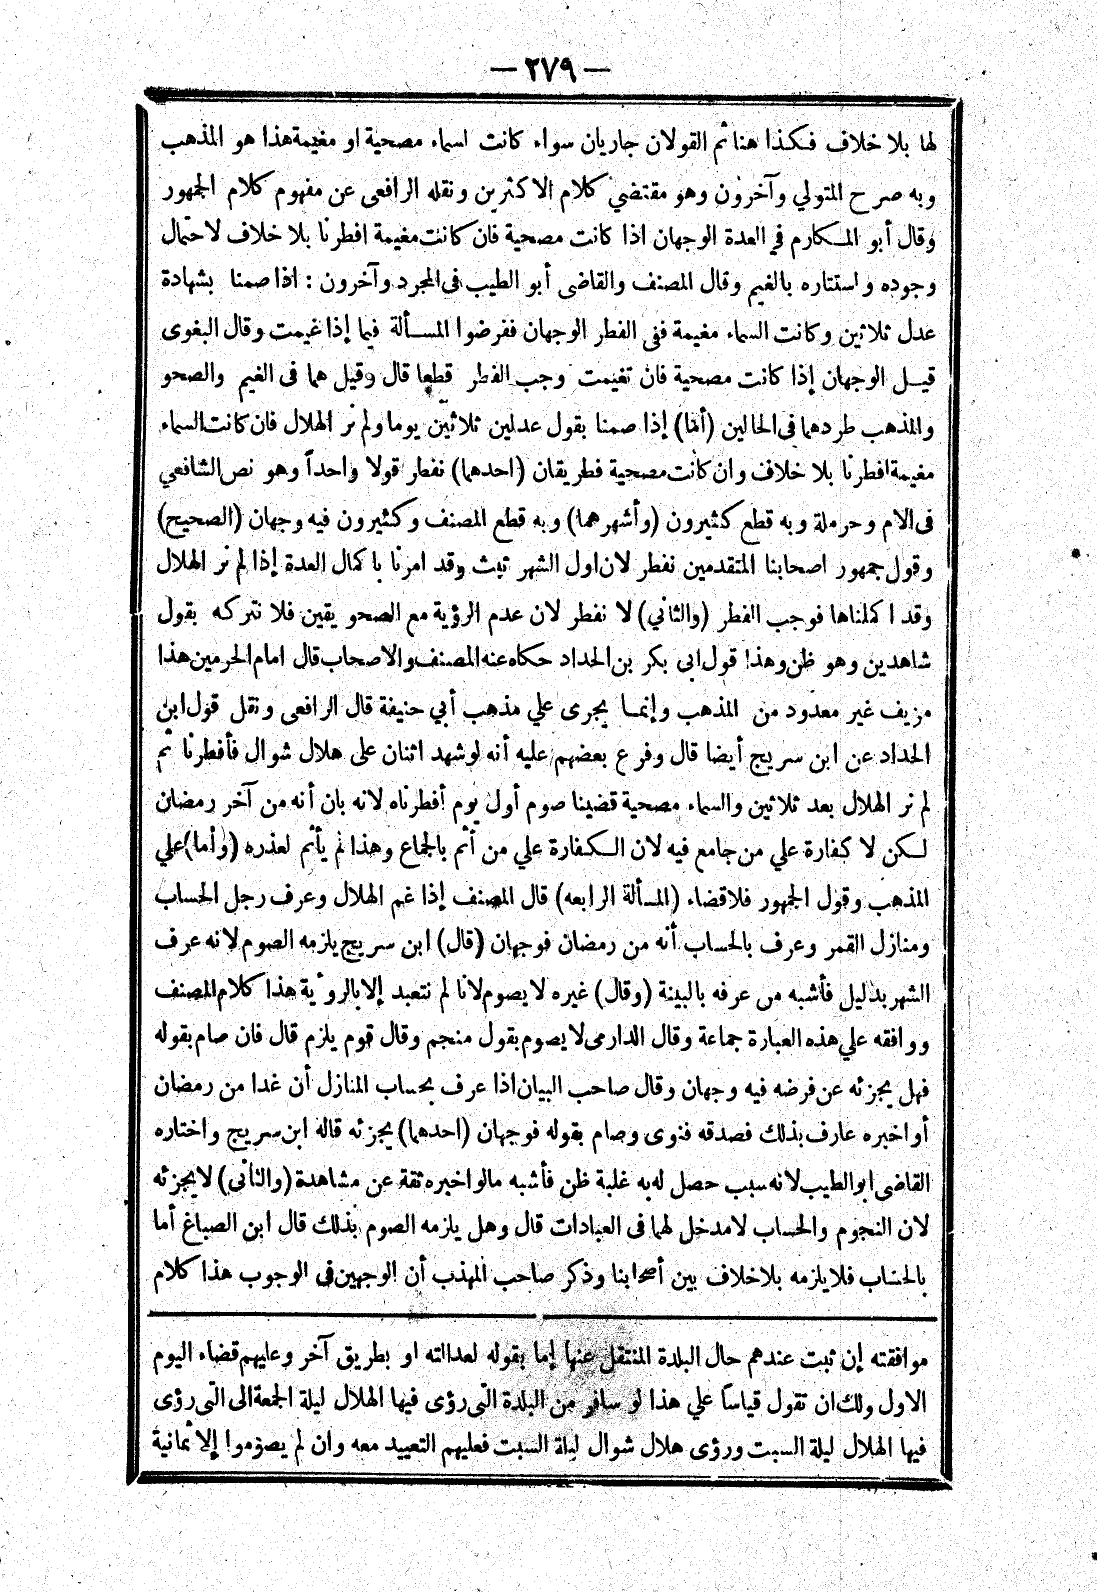 — ٢٧٩ —
لها بلا خلاف فكذا هنا ثم القولان جاريان سواء كانت اسماء مصحية او مغيمة هذا هو المذهب
وبه صرح المتولي وآخرون وهو مقتضي كلام الاكثرين ونقله الرافعى عن مفهوم كلام الجمهور
وقال أبو المكارم في العدة الوجهان اذا كانت مصحية فان كانت مغيمة افطرنا بلا خلاف لاحتمال
وجوده واستتاره بالغيم وقال المصنف والقاضى أبو الطيب فى المجرد وآخرون : اذا صمنا بشهادة
عدل ثلاثين وكانت السماء مغيمة ففى الفطر الوجهان ففرضوا المسألة فيما إذا غيمت وقال البغوى
قيل الوجهان إذا كانت مصحية فان تغيمت وجب الفطر قطعا قال وقيل هما فى الغيم والصحو
والمذهب طردهما فى الحالين (أما) إذا صمنا بقول عدلين ثلاثين يوما ولم نر الهلال فان كانت السماء
مغيمة افطرنا بلا خلاف وان كانت مصحية فطريقان (احدهما) نفطر قولا واحداً وهو نص الشافعي
فى الام وحرملة وبه قطع كثيرون (وأشهرهما) وبه قطع المصنف وكثيرون فيه وجهان (الصحيح)
وقول جمهور اصحابنا المتقدمين نفطر لان اول الشهر ثبت وقد امرنا باكمال العدة إذا لم نر الهلال
وقد اكملناها فوجب الفطر (والثاني) لا نفطر لان عدم الرؤية مع الصحو يقين فلا نتركه بقول
شاهدين وهو ظن وهذا قول ابى بكر بن الحداد حكاه عنه المصنف والاصحاب قال امام الحرمين هذا
مزيف غير معدود من المذهب وإنما يجرى علي مذهب أبي حنيفة قال الرافعى ونقل قول ابن
الحداد عن ابن سريج أيضا قال وفرع بعضهم عليه أنه لو شهد اثنان على هلال شوال فأفطرنا ثم
لم نر الهلال بعد ثلاثين والسماء مصحية قضينا صوم أول يوم أفطرناه لانه بان أنه من آخر رمضان
لكن لا كفارة علي من جامع فيه لان الكفارة علي من أثم بالجماع وهذا لم يأثم لعذره (وأما) علي
المذهب وقول الجمهور فلا قضاء (المسألة الرابعه) قال المصنف إذا غم الهلال وعرف رجل الحساب
ومنازل القمر وعرف بالحساب أنه من رمضان فوجهان (قال) ابن سريج يلزمه الصوم لانه عرف
الشهر بدليل فأشبه من عرفه بالبينة (وقال) غيره لا يصوم لانا لم نتعبد إلا بالرؤية هذا كلام المصنف
ووافقه علي هذه العبارة جماعة وقال الدارمى لا يصوم بقول منجم وقال قوم يلزم قال فان صام بقوله
فهل يجزئه عن فرضه فيه وجهان وقال صاحب البيان اذا عرف بحساب المنازل أن غدا من رمضان
أو اخبره عارف بذلك فصدقه فنوى وصام بقوله فوجهان (احدهما) يجزئه قاله ابن سريج واختاره
القاضى ابو الطيب لانه سبب حصل له به غلبة ظن فأشبه مالو اخبره ثقة عن مشاهدة (والثانى) لا يجزئه
لان النجوم والحساب لا مدخل لهما فى العبادات قال وهل يلزمه الصوم بذلك قال ابن الصباغ أما
بالحساب فلا يلزمه بلا خلاف بين أصحابنا وذكر صاحب المهذب أن الوجهين في الوجوب هذا كلام
موافقته إن ثبت عندهم حال البلدة المنتقل عنها إما بقوله لعدالته او بطريق آخر وعليهم قضاء اليوم
الاول ولك ان تقول قياساً علي هذا لو سافر من البلدة التى رؤى فيها الهلال ليلة الجمعة الى التى رؤى
فيها الهلال ليلة السبت ورؤى هلال شوال ليلة السبت فعليهم التعييد معه وان لم يصوموا إلا ثمانية